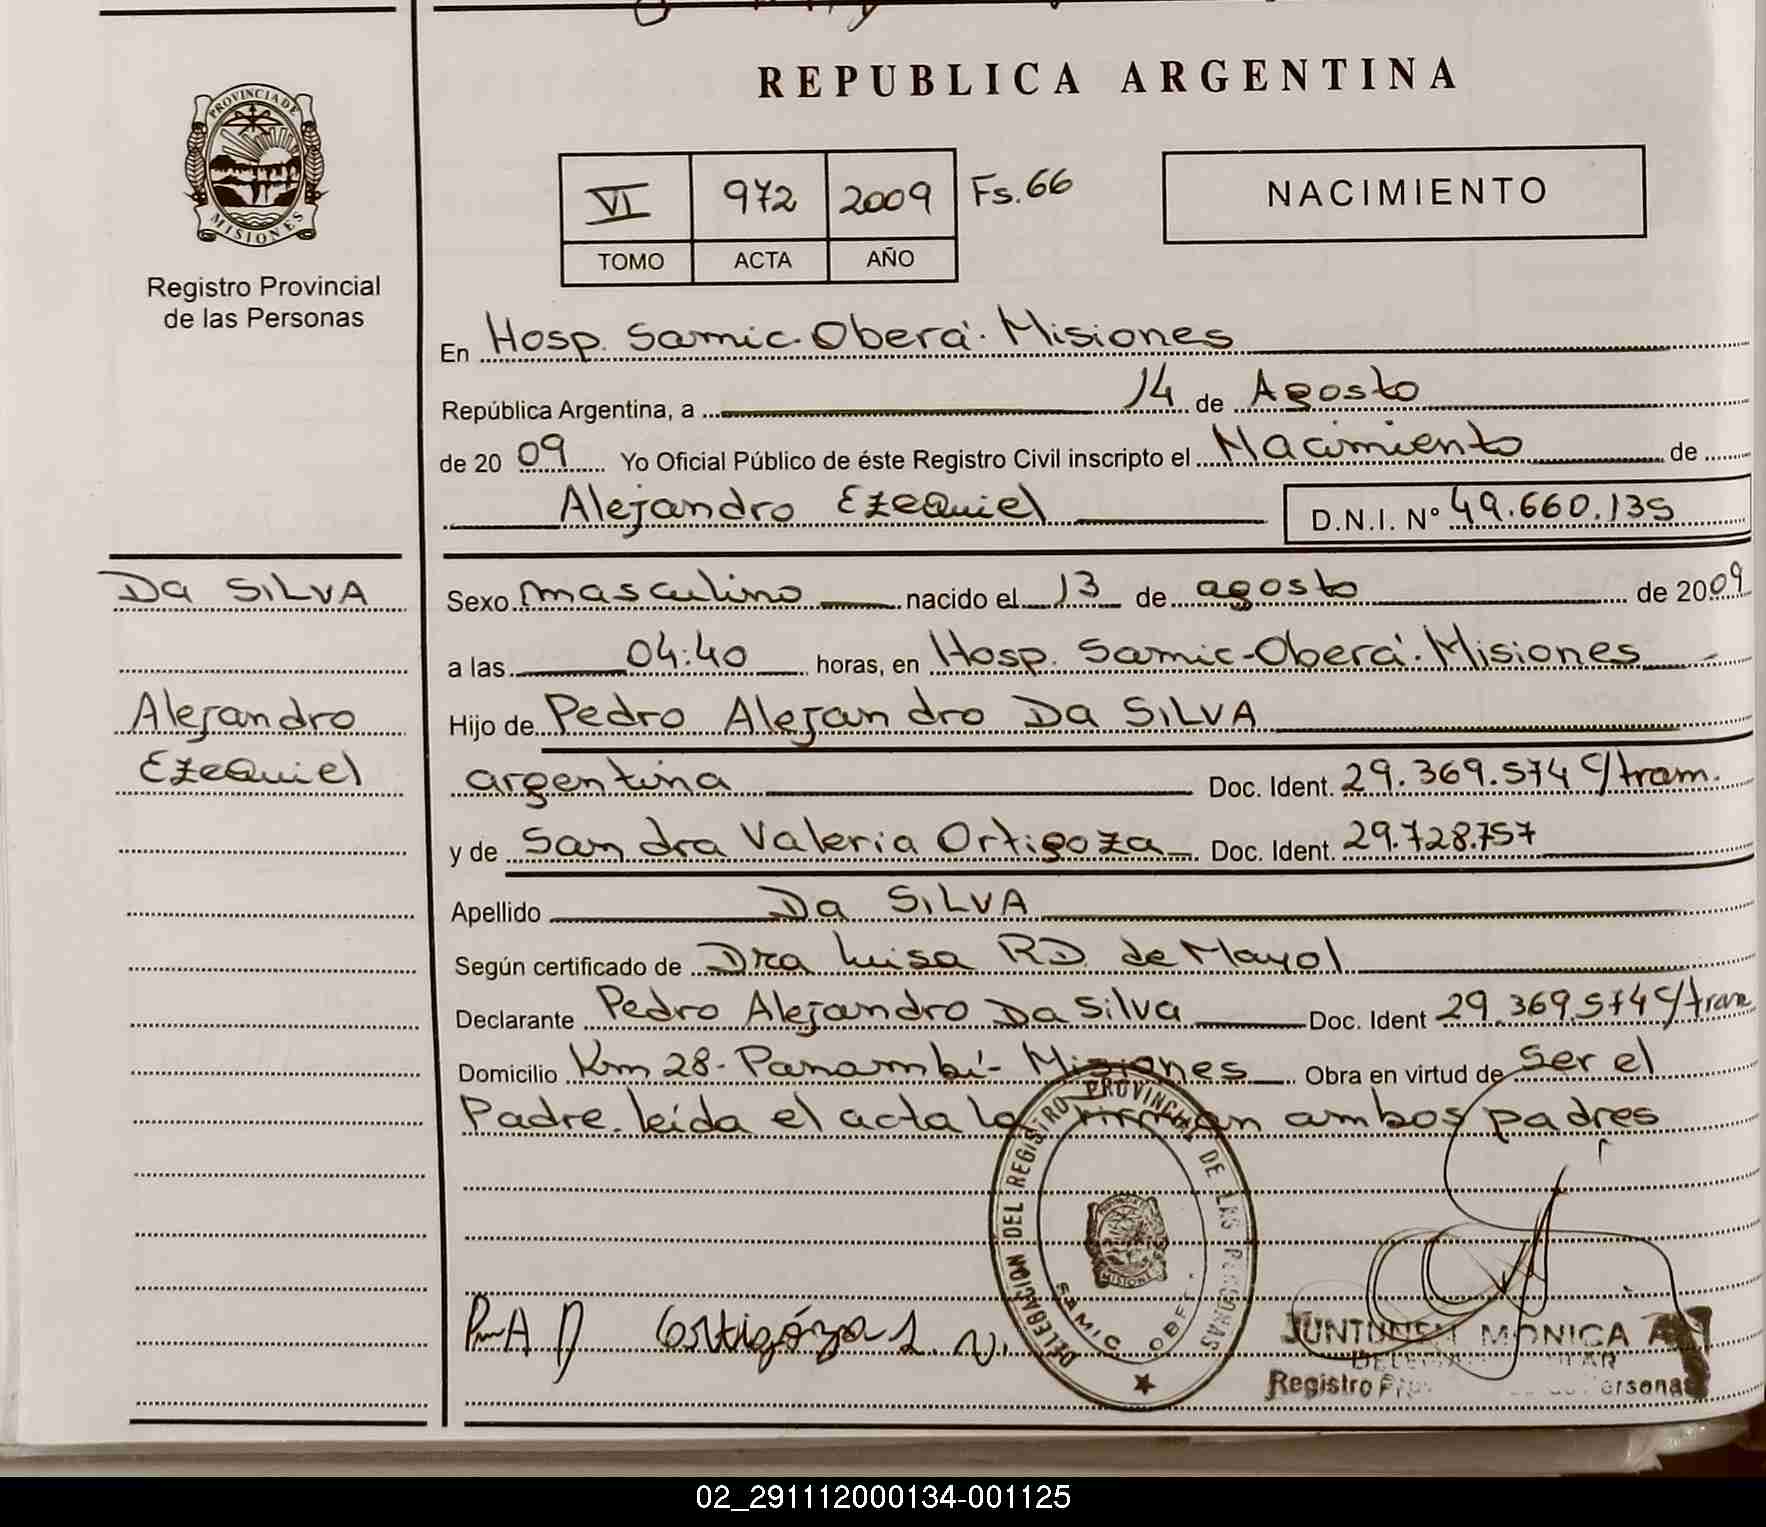 REPUBLICA ARGENTINA
PROVINCIA DE
MISIONES
Registro Provincial
de las Personas
VI 972 2009 Fs. 66
TOMO ACTA AÑO
NACIMIENTO
En Hosp. Samic. Oberá. Misiones
República Argentina, a 14 de Agosto
de 20 09 Yo Oficial Público de éste Registro Civil inscripto el Nacimiento de
Alejandro Ezequiel D.N.I. Nº 49.660.135
Da SILVA
Alejandro
Ezequiel
Sexo masculino nacido el 13 de agosto de 2009
a las 04:40 horas, en Hosp. Samic-Oberá. Misiones
Hijo de Pedro Alejandro Da SILVA
argentina Doc. Ident. 29.369.574 C/tram.
y de Sandra Valeria Ortigoza Doc. Ident. 29.728.757
Apellido Da SILVA
Según certificado de Dra Luisa RD de Mayol
Declarante Pedro Alejandro Da Silva Doc. Ident 29.369.574 C/tram
Domicilio Km 28- Panambí- Misiones Obra en virtud de Ser el
Padre. leída el acta la firman ambos padres
DELEGACION DEL REGISTRO PROVINCIAL DE LAS PERSONAS
SAMIC
Ortigóza S. V.
MONICA
Registro
02_291112000134-001125